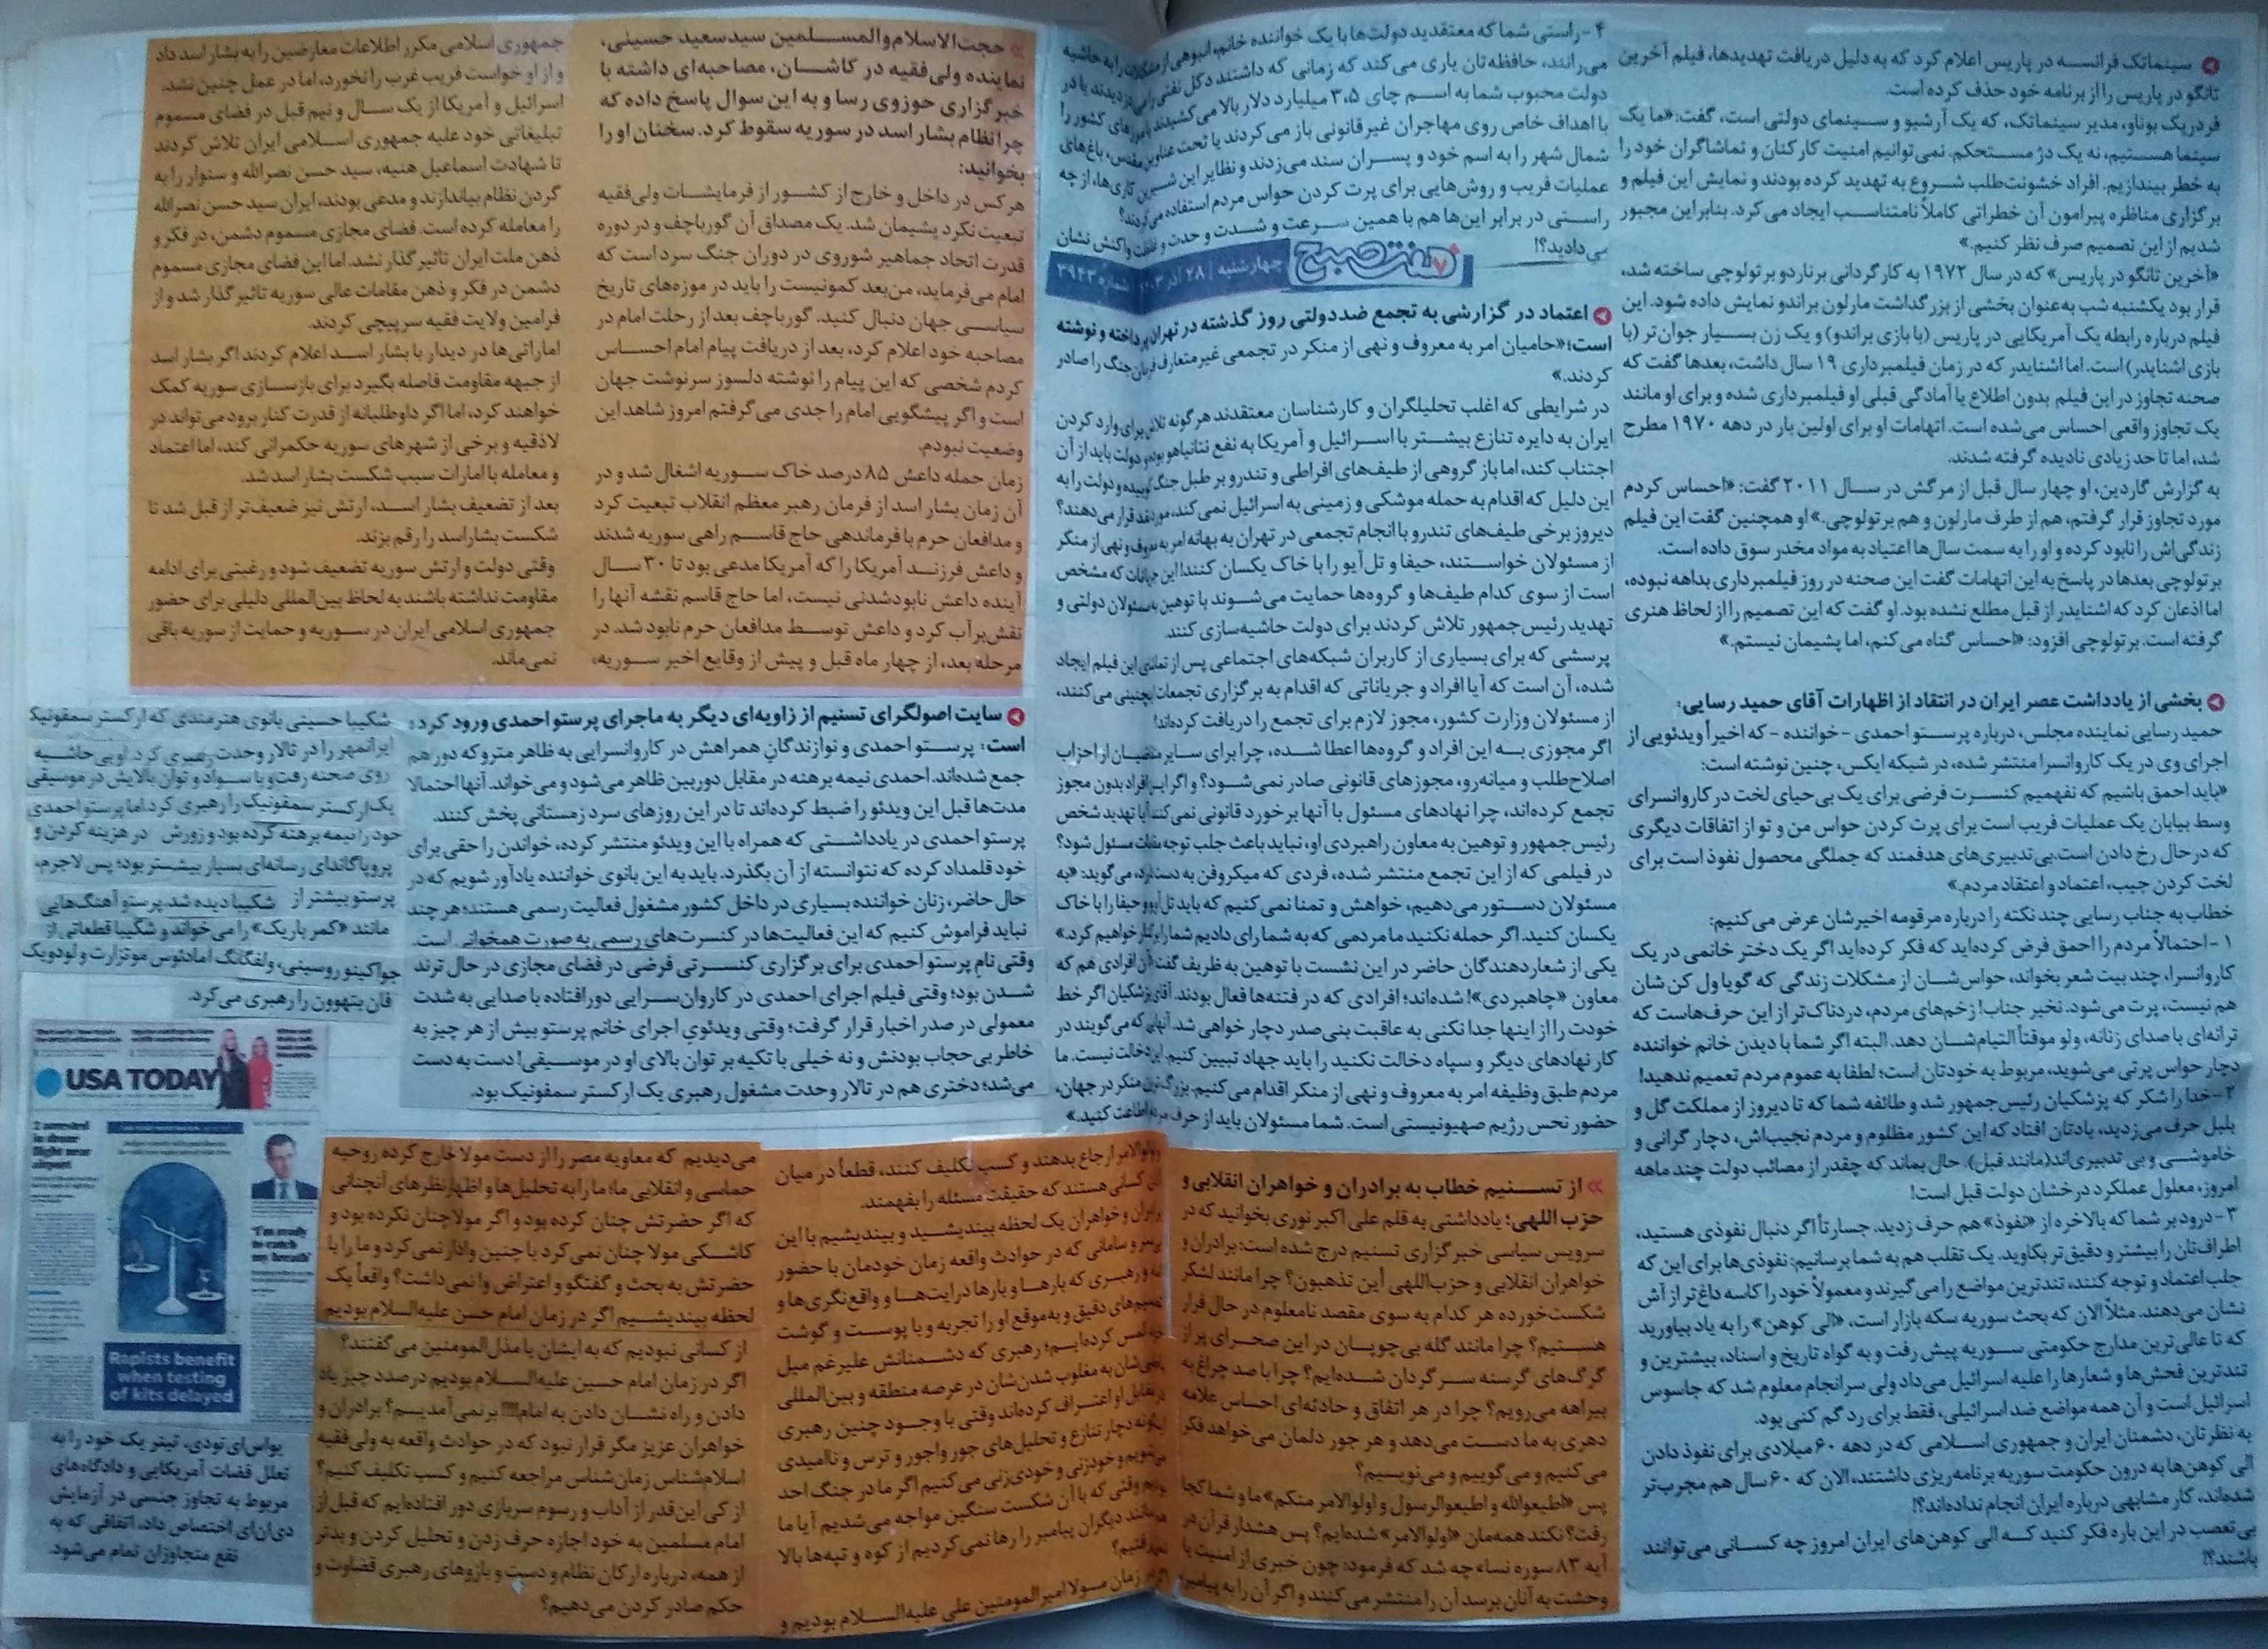 سینماتک فرانسه در پاریس اعلام کرد که به دلیل دریافت تهدیدها، فیلم آخرین
تانگو در پاریس را از برنامه خود حذف کرده است.
فردریک بونار، مدیر سینماتک، که یک آرشیو و سینمای دولتی است، گفت: «ما یک
سینما هستیم، نه یک دژ مستحکم. نمی‌توانیم امنیت کارکنان و تماشاگران خود را
به خطر بیندازیم. افراد خشونت‌طلب شروع به تهدید کرده بودند و نمایش این فیلم و
برگزاری مناظره پیرامون آن خطراتی کاملاً نامتناسب ایجاد می‌کرد. بنابراین مجبور
شدیم از این تصمیم صرف نظر کنیم.»
«آخرین تانگو در پاریس» که در سال ۱۹۷۲ به کارگردانی برناردو برتولوچی ساخته شد،
قرار بود یکشنبه شب به‌عنوان بخشی از بزرگداشت مارلون براندو نمایش داده شود. این
فیلم درباره رابطه یک آمریکایی در پاریس (با بازی براندو) و یک زن بسیار جوان‌تر (با
بازی اشنایدر) است. اما اشنایدر که در زمان فیلمبرداری ۱۹ سال داشت، بعدها گفت که
صحنه تجاوز در این فیلم بدون اطلاع یا آمادگی قبلی او فیلمبرداری شده و برای او مانند
یک تجاوز واقعی احساس می‌شده است. اتهامات او برای اولین بار در دهه ۱۹۷۰ مطرح
شد، اما تا حد زیادی نادیده گرفته شدند.
به گزارش گاردین، او چهار سال قبل از مرگش در سال ۲۰۱۱ گفت: «احساس کردم
مورد تجاوز قرار گرفتم، هم از طرف مارلون و هم برتولوچی.» او همچنین گفت این فیلم
زندگی‌اش را نابود کرده و او را به سمت سال‌ها اعتیاد به مواد مخدر سوق داده است.
برتولوچی بعدها در پاسخ به این اتهامات گفت این صحنه در روز فیلمبرداری بداهه نبوده،
اما اذعان کرد که اشنایدر از قبل مطلع نشده بود. او گفت که این تصمیم را از لحاظ هنری
گرفته است. برتولوچی افزود: «احساس گناه می‌کنم، اما پشیمان نیستم.»
بخشی از یادداشت عصر ایران در انتقاد از اظهارات آقای حمید رسایی:
حمید رسایی نماینده مجلس، درباره پرستو احمدی - خواننده - که اخیراً ویدئویی از
اجرای وی در یک کاروانسرا منتشر شده، در شبکه ایکس، چنین نوشته است:
«باید احمق باشیم که نفهمیم کنسرت فرضی برای یک بی‌حیای لخت در کاروانسرای
وسط بیابان یک عملیات فریب است برای پرت کردن حواس من و تو از اتفاقات دیگری
که در حال رخ دادن است. بی‌تدبیری‌های هدفمند که جملگی محصول نفوذ است برای
لخت کردن جیب، اعتماد و اعتقاد مردم.»
خطاب به جناب رسایی چند نکته را درباره مرقومه اخیرشان عرض می‌کنیم:
۱- احتمالاً مردم را احمق فرض کرده‌اید که فکر کرده‌اید اگر یک دختر خانمی در یک
کاروانسرا، چند بیت شعر بخواند، حواس‌شان از مشکلات زندگی که گویا ول کن شان
هم نیست، پرت می‌شود. نخیر جناب! زخم‌های مردم، دردناک‌تر از این حرف‌هاست که
ترانه‌ای با صدای زنانه، ولو موقتاً التیام‌شان دهد. البته اگر شما با دیدن خانم خواننده
دچار حواس پرتی می‌شوید، مربوط به خودتان است؛ لطفا به عموم مردم تعمیم ندهید!
۲- خدا را شکر که پزشکیان رئیس‌جمهور شد و طائفه شما که تا دیروز از مملکت گل و
بلبل حرف می‌زدید، یادتان افتاد که این کشور مظلوم و مردم نجیب‌اش، دچار گرانی و
خاموشی و بی تدبیری‌اند(مانند قبل). حال بماند که چقدر از مصائب دولت چند ماهه
امروز، معلول عملکرد درخشان دولت قبل است!
۳- درود بر شما که بالاخره از «نفوذ» هم حرف زدید. جسارتاً اگر دنبال نفوذی هستید،
اطراف‌تان را بیشتر و دقیق‌تر بکاوید. یک تقلب هم به شما برسانیم: نفوذی‌ها برای این که
جلب اعتماد و توجه کنند، تندترین مواضع را می‌گیرند و معمولاً خود را کاسه داغ‌تر از آش
نشان می‌دهند. مثلاً الان که بحث سوریه سکه بازار است، «الی کوهن» را به یاد بیاورید
که تا عالی‌ترین مدارج حکومتی سوریه پیش رفت و به گواه تاریخ و اسناد، بیشترین و
تندترین فحش‌ها و شعارها را علیه اسرائیل می‌داد ولی سرانجام معلوم شد که جاسوس
اسرائیل است و آن همه مواضع ضد اسرائیلی، فقط برای رد گم کنی بود.
به نظرتان، دشمنان ایران و جمهوری اسلامی که در دهه ۶۰ میلادی برای نفوذ دادن
الی کوهن‌ها به درون حکومت سوریه برنامه‌ریزی داشتند، الان که ۶۰ سال هم مجرب‌تر
شده‌اند، کار مشابهی درباره ایران انجام نداده‌اند؟!
بی‌تعصب در این باره فکر کنید که الی کوهن‌های ایران امروز چه کسانی می‌توانند
باشند؟!
۴- راستی شما که معتقدید دولت‌ها با یک خواننده خانم، انبوهی از مشکلات را به حاشیه
می‌رانند، حافظه‌تان یاری می‌کند که زمانی که داشتند دکل نفتی را می‌دزدیدند یا در
دولت محبوب شما به اسم چای ۳.۵ میلیارد دلار بالا می‌کشیدند یا مرزهای کشور را
با اهداف خاص روی مهاجران غیرقانونی باز می‌کردند یا تحت عناوین مقدس، باغ‌های
شمال شهر را به اسم خود و پسران سند می‌زدند و نظایر این شیرین کاری‌ها، از چه
عملیات فریب و روش‌هایی برای پرت کردن حواس مردم استفاده می‌کردند؟
راستی در برابر این‌ها هم با همین سرعت و شدت و حدت و غلظت واکنش نشان
می‌دادید؟!
هفت صبح
چهارشنبه | ۲۸ آذر ۱۴۰۳ | شماره ۳۹۴۳
اعتماد در گزارشی به تجمع ضددولتی روز گذشته در تهران پرداخته و نوشته
است: «حامیان امر به معروف و نهی از منکر در تجمعی غیرمتعارف فرمان جنگ را صادر
کردند.»
در شرایطی که اغلب تحلیلگران و کارشناسان معتقدند هرگونه تلاش برای وارد کردن
ایران به دایره تنازع بیشتر با اسرائیل و آمریکا به نفع نتانیاهو بوده و دولت باید از آن
اجتناب کند، اما باز گروهی از طیف‌های افراطی و تندرو بر طبل جنگ کوبیده و دولت را به
این دلیل که اقدام به حمله موشکی و زمینی به اسرائیل نمی‌کند، مورد نقد قرار می‌دهند؟
دیروز برخی طیف‌های تندرو با انجام تجمعی در تهران به بهانه امر به معروف و نهی از منکر
از مسئولان خواستند، حیفا و تل‌آیو را با خاک یکسان کنند! این جریانات که مشخص
است از سوی کدام طیف‌ها و گروه‌ها حمایت می‌شوند با توهین به مسئولان دولتی و
تهدید رئیس‌جمهور تلاش کردند برای دولت حاشیه‌سازی کنند.
پرسشی که برای بسیاری از کاربران شبکه‌های اجتماعی پس از تماشای این فیلم ایجاد
شده، آن است که آیا افراد و جریاناتی که اقدام به برگزاری تجمعات اینچنینی می‌کنند،
از مسئولان وزارت کشور، مجوز لازم برای تجمع را دریافت کرده‌اند!
اگر مجوزی به این افراد و گروه‌ها اعطا شده، چرا برای سایر متقاضیان از احزاب
اصلاح‌طلب و میانه‌رو، مجوزهای قانونی صادر نمی‌شود؟ و اگر این افراد بدون مجوز
تجمع کرده‌اند، چرا نهادهای مسئول با آنها برخورد قانونی نمی‌کنند؟ آیا تهدید شخص
رئیس‌جمهور و توهین به معاون راهبردی او، نباید باعث جلب توجه مقامات مسئول شود؟
در فیلمی که از این تجمع منتشر شده، فردی که میکروفن به دست دارد، می‌گوید: «به
مسئولان دستور می‌دهیم، خواهش و تمنا نمی‌کنیم که باید تل‌آویو و حیفا را با خاک
یکسان کنید. اگر حمله نکنید ما مردمی که به شما رای دادیم شما را برکنار خواهیم کرد.»
یکی از شعاردهندگان حاضر در این نشست با توهین به ظریف گفت: آن افرادی هم که
معاون «چاهبردی»! شده‌اند؛ افرادی که در فتنه‌ها فعال بودند. آقای پزشکیان اگر خط
خودت را از اینها جدا نکنی به عاقبت بنی‌صدر دچار خواهی شد. آنهایی که می‌گویند در
کار نهادهای دیگر و سپاه دخالت نکنید را باید جهاد تبیین کنیم. این دخالت نیست. ما
مردم طبق وظیفه امر به معروف و نهی از منکر اقدام می‌کنیم. بزرگ‌ترین منکر در جهان،
حضور نحس رژیم صهیونیستی است. شما مسئولان باید از حرف مردم اطاعت کنید.»
از تسنیم خطاب به برادران و خواهران انقلابی و
حزب اللهی؛ یادداشتی به قلم علی اکبر نوری بخوانید که در
سرویس سیاسی خبرگزاری تسنیم درج شده است: برادران و
خواهران انقلابی و حزب‌اللهی أین تذهبون؟ چرا مانند لشکر
شکست‌خورده هر کدام به سوی مقصد نامعلوم در حال فرار
هستیم؟ چرا مانند گله بی‌چوپان در این صحرای پر از
گرگ‌های گرسنه سرگردان شده‌ایم؟ چرا با صد چراغ به
بیراهه می‌رویم؟ چرا در هر اتفاق و حادثه‌ای احساس علامه
دهری به ما دست می‌دهد و هر جور دلمان می‌خواهد فکر
می‌کنیم و می‌گوییم و می‌نویسیم؟
پس «اطیعوالله و اطیعوالرسول و اولوالامر منکم» ما و شما کجا
رفت؟ نکند همه‌مان «اولوالامر» شده‌ایم؟ پس هشدار قرآن در
آیه ۸۳ سوره نساء چه شد که فرمود: چون خبری از امنیت یا
وحشت به آنان برسد آن را منتشر می‌کنند و اگر آن را به پیامبر
و اولوالامر ارجاع بدهند و کسب تکلیف کنند، قطعاً در میان
آنان کسانی هستند که حقیقت مسئله را بفهمند.
برادران و خواهران یک لحظه بیندیشید و بیندیشیم با این
سر و سامانی که در حوادث واقعه زمان خودمان با حضور
و رهبری که بارها و بارها درایت‌ها و واقع‌نگری‌ها و
تصمیم‌های دقیق و به‌موقع او را تجربه و با پوست و گوشت
لمس کرده‌ایم؛ رهبری که دشمنانش علیرغم میل
باطنی‌شان به مغلوب شدن‌شان در عرصه منطقه و بین‌المللی
در مقابل او اعتراف کرده‌اند وقتی با وجود چنین رهبری
اینگونه دچار تنازع و تحلیل‌های جور واجور و ترس و ناامیدی
می‌شویم و خودزنی و خودی‌زنی می‌کنیم اگر ما در جنگ احد
بودیم وقتی که با آن شکست سنگین مواجه می‌شدیم آیا ما
هم مانند دیگران پیامبر را رها نمی‌کردیم از کوه و تپه‌ها بالا
نمی‌رفتیم؟
اگر در زمان مولا امیرالمومنین علی علیه‌السلام بودیم و
می‌دیدیم که معاویه مصر را از دست مولا خارج کرده روحیه
حماسی و انقلابی ما؛ ما را به تحلیل‌ها و اظهارنظرهای آنچنانی
که اگر حضرتش چنان کرده بود و اگر مولا چنان نکرده بود و
کاشکی مولا چنان نمی‌کرد یا چنین وادار نمی‌کرد و ما را با
حضرتش به بحث و گفتگو و اعتراض وا نمی‌داشت؟ واقعاً یک
لحظه بیندیشیم اگر در زمان امام حسن علیه‌السلام بودیم
از کسانی نبودیم که به ایشان یا مذل‌المومنین می‌گفتند؟
اگر در زمان امام حسین علیه‌السلام بودیم درصدد چیز یاد
دادن و راه نشان دادن به امام!!!! برنمی‌آمدیم؟ برادران و
خواهران عزیز مگر قرار نبود که در حوادث واقعه به ولی‌فقیه
اسلام‌شناس زمان‌شناس مراجعه کنیم و کسب تکلیف کنیم؟
از کی این‌قدر از آداب و رسوم سربازی دور افتاده‌ایم که قبل از
امام مسلمین به خود اجازه حرف زدن و تحلیل کردن و بدتر
از همه، درباره ارکان نظام و دست و بازوهای رهبری قضاوت و
حکم صادر کردن می‌دهیم؟
حجت‌الاسلام‌والمسلمین سیدسعید حسینی،
نماینده ولی‌فقیه در کاشان، مصاحبه‌ای داشته با
خبرگزاری حوزوی رسا و به این سوال پاسخ داده که
چرا نظام بشار اسد در سوریه سقوط کرد. سخنان او را
بخوانید:
هر کس در داخل و خارج از کشور از فرمایشات ولی‌فقیه
تبعیت نکرد پشیمان شد. یک مصداق آن گورباچف و در دوره
قدرت اتحاد جماهیر شوروی در دوران جنگ سرد است که
امام می‌فرماید، من‌بعد کمونیست را باید در موزه‌های تاریخ
سیاسی جهان دنبال کنید. گورباچف بعد از رحلت امام در
مصاحبه خود اعلام کرد، بعد از دریافت پیام امام احساس
کردم شخصی که این پیام را نوشته دلسوز سرنوشت جهان
است و اگر پیشگویی امام را جدی می‌گرفتم امروز شاهد این
وضعیت نبودم.
زمان حمله داعش ۸۵ درصد خاک سوریه اشغال شد و در
آن زمان بشار اسد از فرمان رهبر معظم انقلاب تبعیت کرد
و مدافعان حرم با فرماندهی حاج قاسم راهی سوریه شدند
و داعش فرزند آمریکا را که آمریکا مدعی بود تا ۳۰ سال
آینده داعش نابودشدنی نیست، اما حاج قاسم نقشه آنها را
نقش‌برآب کرد و داعش توسط مدافعان حرم نابود شد. در
مرحله بعد، از چهار ماه قبل و پیش از وقایع اخیر سوریه،
جمهوری اسلامی مکرر اطلاعات معارضین را به بشار اسد داد
و از او خواست فریب غرب را نخورد، اما در عمل چنین نشد.
اسرائیل و آمریکا از یک سال و نیم قبل در فضای مسموم
تبلیغاتی خود علیه جمهوری اسلامی ایران تلاش کردند
تا شهادت اسماعیل هنیه، سید حسن نصرالله و سنوار را به
گردن نظام بیاندازند و مدعی بودند، ایران سید حسن نصرالله
را معامله کرده است. فضای مجازی مسموم دشمن، در فکر و
ذهن ملت ایران تاثیرگذار نشد. اما این فضای مجازی مسموم
دشمن در فکر و ذهن مقامات عالی سوریه تاثیرگذار شد و از
فرامین ولایت فقیه سرپیچی کردند.
اماراتی‌ها در دیدار با بشار اسد اعلام کردند اگر بشار اسد
از جبهه مقاومت فاصله بگیرد برای بازسازی سوریه کمک
خواهند کرد، اما اگر داوطلبانه از قدرت کنار برود می‌تواند در
لاذقیه و برخی از شهرهای سوریه حکمرانی کند، اما اعتماد
و معامله با امارات سبب شکست بشار اسد شد.
بعد از تضعیف بشار اسد، ارتش نیز ضعیف‌تر از قبل شد تا
شکست بشاراسد را رقم بزند.
وقتی دولت و ارتش سوریه تضعیف شود و رغبتی برای ادامه
مقاومت نداشته باشند به لحاظ بین‌المللی دلیلی برای حضور
جمهوری اسلامی ایران در سوریه و حمایت از سوریه باقی
نمی‌ماند.
سایت اصولگرای تسنیم از زاویه‌ای دیگر به ماجرای پرستو احمدی ورود کرده
است: پرستو احمدی و نوازندگان همراهش در کاروانسرایی به ظاهر متروکه دور هم
جمع شده‌اند. احمدی نیمه برهنه در مقابل دوربین ظاهر می‌شود و می‌خواند. آنها احتمالا
مدت‌ها قبل این ویدئو را ضبط کرده‌اند تا در این روزهای سرد زمستانی پخش کنند.
پرستو احمدی در یادداشتی که همراه با این ویدئو منتشر کرده، خواندن را حقی برای
خود قلمداد کرده که نتوانسته از آن بگذرد. باید به این بانوی خواننده یادآور شویم که در
حال حاضر، زنان خواننده بسیاری در داخل کشور مشغول فعالیت رسمی هستند؛ هر چند
نباید فراموش کنیم که این فعالیت‌ها در کنسرت‌های رسمی به صورت همخوانی است.
وقتی نام پرستو احمدی برای برگزاری کنسرتی فرضی در فضای مجازی در حال ترند
شدن بود؛ وقتی فیلم اجرای احمدی در کاروان‌سرایی دورافتاده با صدایی به شدت
معمولی در صدر اخبار قرار گرفت؛ وقتی ویدئوی اجرای خانم پرستو بیش از هر چیز به
خاطر بی‌حجاب بودنش و نه خیلی با تکیه بر توان بالای او در موسیقی! دست به دست
می‌شد؛ دختری هم در تالار وحدت مشغول رهبری یک ارکستر سمفونیک بود.
شکیبا حسینی بانوی هنرمندی که ارکستر سمفونیک
ایرانمهر را در تالار وحدت رهبری کرد. او بی حاشیه
روی صحنه رفت و با سواد و توان بالایش در موسیقی
یک ارکستر سمفونیک را رهبری کرد. اما پرستو احمدی
خود را نیمه برهنه کرده بود و زورش در هزینه کردن و
پروپاگاندای رسانه‌ای بسیار بیشتر بود؛ پس لاجرم،
پرستو بیشتر از شکیبا دیده شد. پرستو آهنگ‌هایی
مانند «کمر باریک» را می‌خواند و شکیبا قطعاتی از
جواکینو روسینی، ولفگانگ آمادئوس موتزارت و لودویک
فان بتهوون را رهبری می‌کرد.
USA TODAY
2 arrested
in drone
flight near
airport
'I'm ready
to catch
my breath'
Rapists benefit
when testing
of kits delayed
یواس‌ای تودی، تیتر یک خود را به
تعلل قضات آمریکایی و دادگاه‌های
مربوط به تجاوز جنسی در آزمایش
دی‌ان‌ای اختصاص داد، اتفاقی که به
نفع متجاوزان تمام می‌شود.